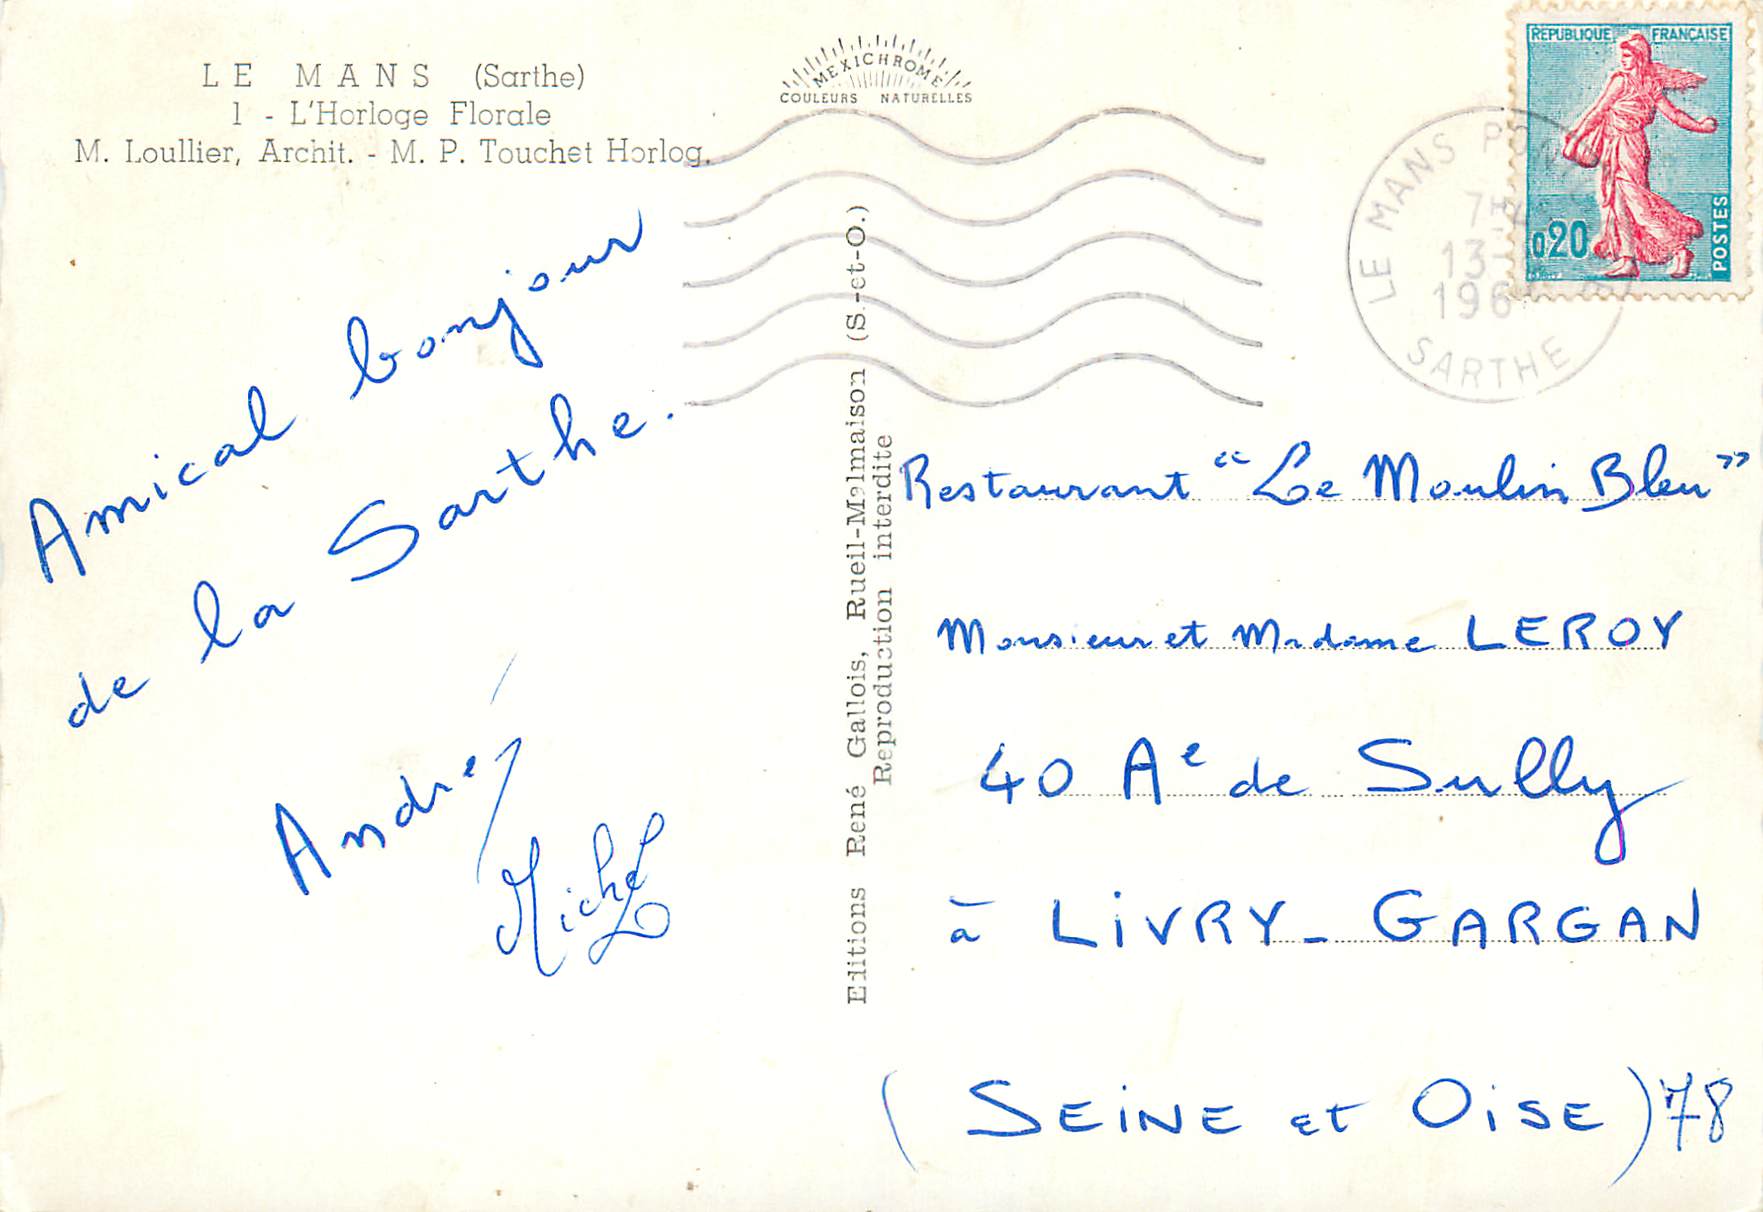 LE MANS (Sarthe)
1 - L'Horloge Florale
M. Loullier, Archit. - M. P. Touchet Horlog.
MEXICHROME
COULEURS NATURELLES
REPUBLIQUE FRANÇAISE
0,20
POSTES
LE MANS
7H
13
196
SARTHE
Amical bonjour
de la Sarthe.
André
Michel
Editions René Gallois, Rueil-Malmaison (S.-et-O.)
Reproduction interdite
Restaurant "Le Moulin Bleu"
Monsieur et Madame LEROY
40 Ae de Sully
à LIVRY-GARGAN
(SEINE et OISE) 78